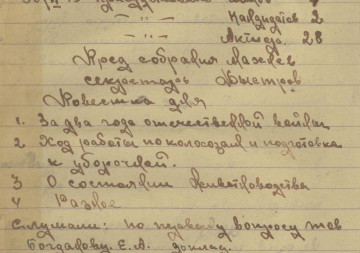 — " — Кандидатов 2
— " — Актива. 28
Пред собрания Мажев
секретарь Быстров
Повестка дня
1. За два года отечественной войны
2 Ход работы по колхозам и подготовка
к уборочной.
3 О состоянии животноводства
4 Разное
Слушали: по первому вопросу тов
Богданову. Е.А. доклад.